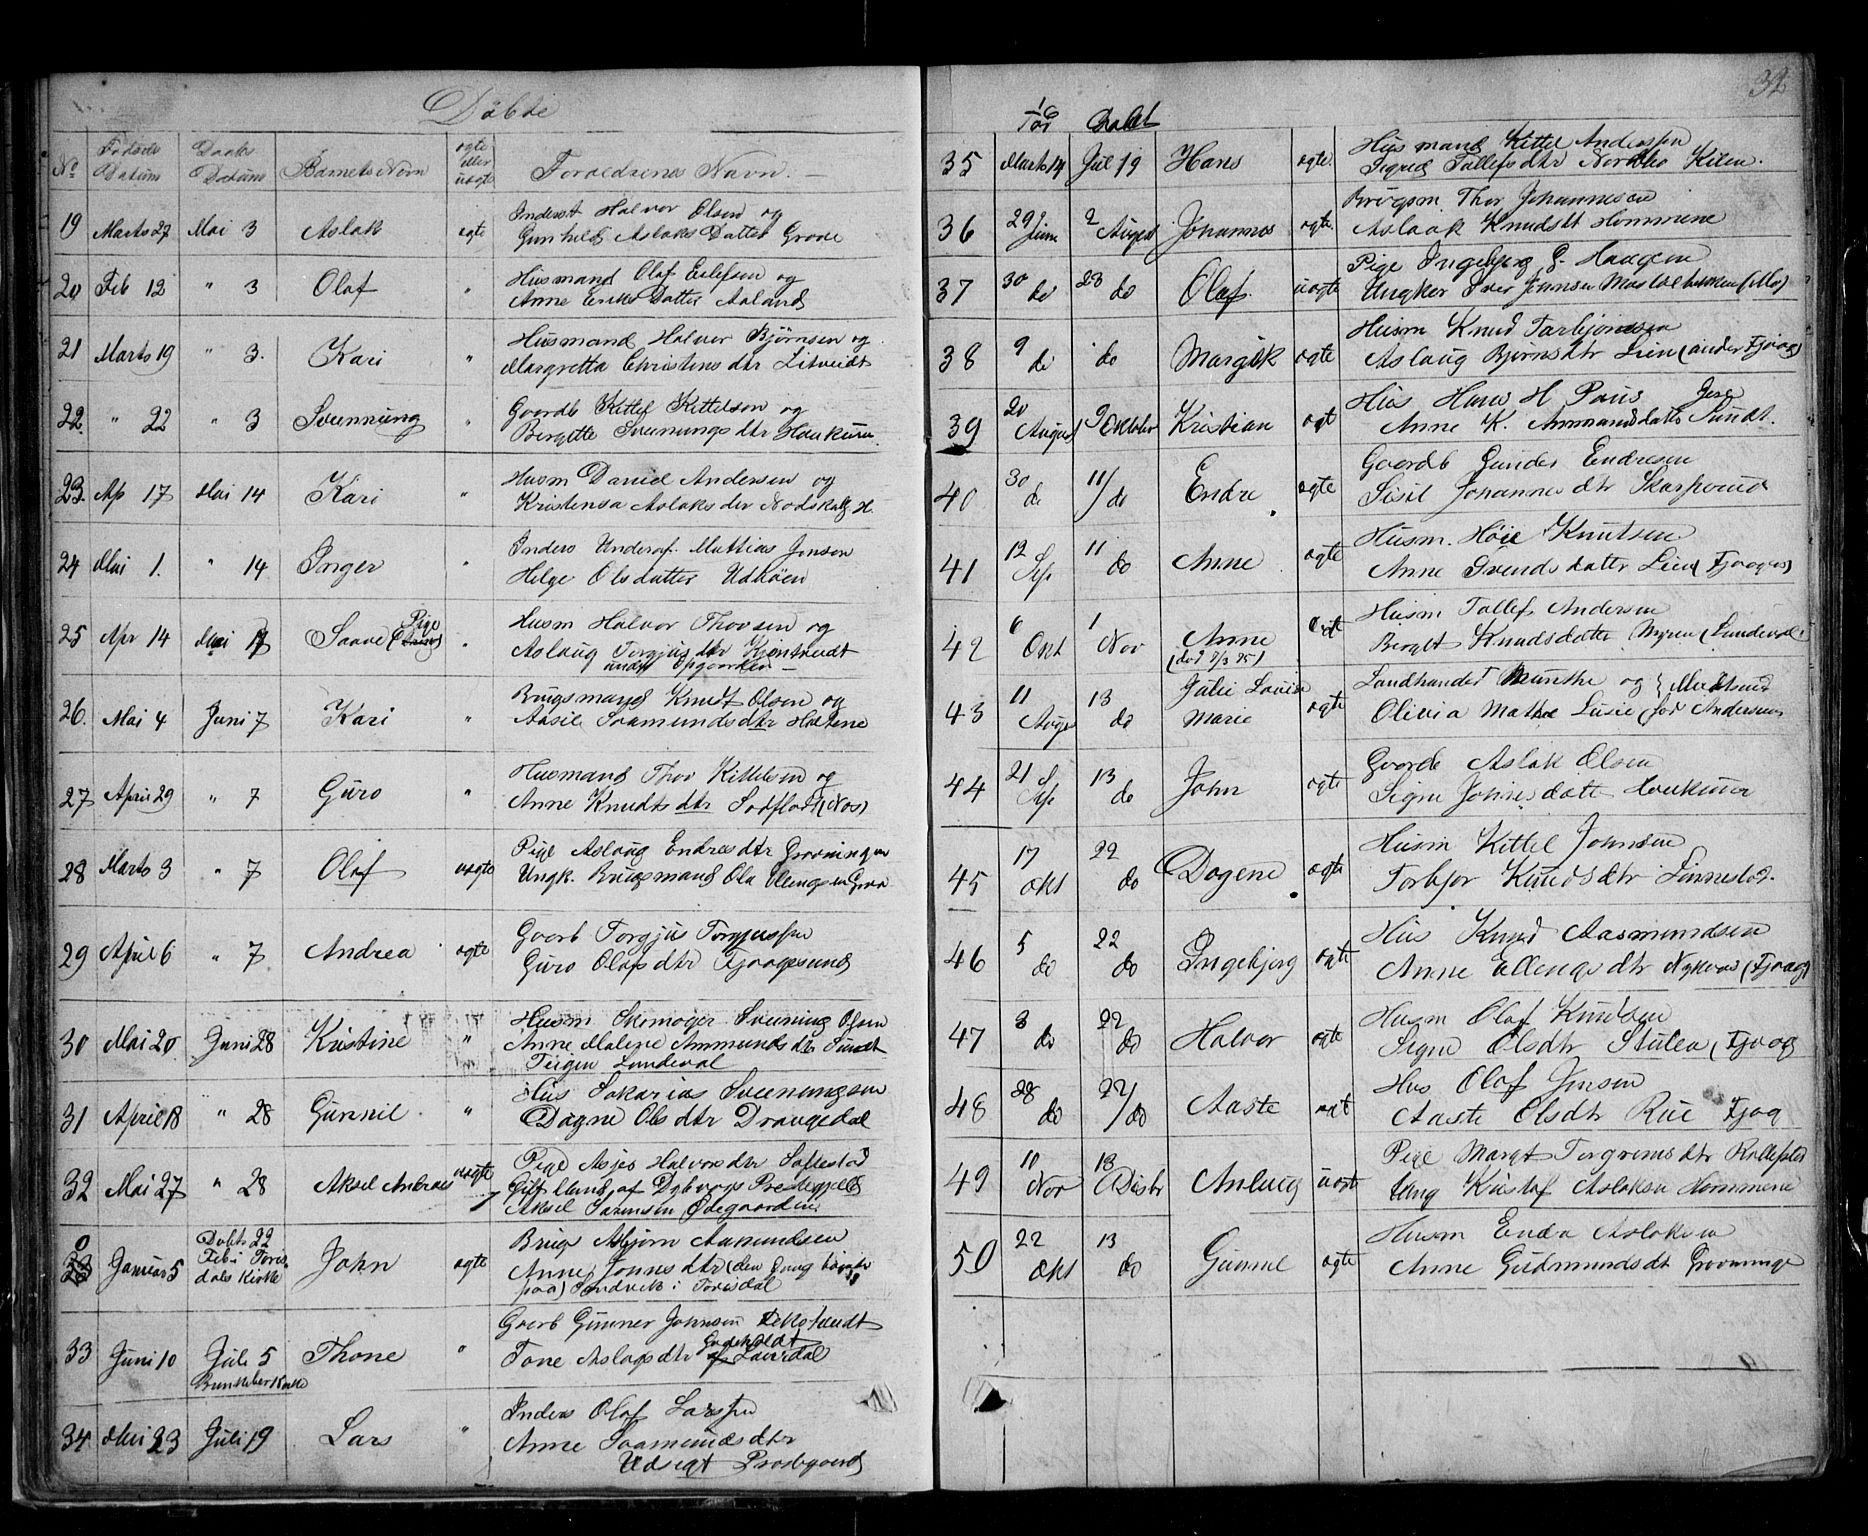 Döbte
No Fødsels Datum Daabs Datum Barnets Navn ægte eller uægte Foreldrenes Navn.
19 Marts 27 Mai 3 Aslak egte Inderst Halvor Olsen og
Gunhild Aslaks Datter Grave
20 Feb 12 " 3 Olaf " Husmand Olaf Eilefsen og
Anne Eriks Datter Aaland
21 Marts 19 " 3. Kari " Husmand Halvor Bjørnsen og
Margretta Christens dtr Litveidt
22. " 22 " 3 Svennung " Gaardb Kittel Kittelson og
Bergitte Svenungs dtr Haukum
23. Ap 17 Mai 14 Kari " Husm Daniel Andersen og
Kristensa Aslaks der
24 Mai 1. " 14 Inger " Inders Mattias Jonson
Helge Olsdatter Udhøen
25 Apr 14 Mai 17 Saave Pige " Husm Halvor Thorsen og
Aslaug Torgjus dtr
under
26. Mai 4 Juni 7 Kari " Brugsmand Knut Olsen og
Aasil Saamunds dtr Haltene
27 April 29 " 7 Guro " Husmand Thor Kittelsen og
Anne Knudts dtr (Nos)
28 Marts 3 " 7 Olaf uægte Pige Aslaug Endres dtr Grovningen
Ungk. Brugsmand Ola Ellengsen Grava
29 April 6 " 7 Andrea ogte Gaarb Torgjus Torgjussen
Guro Olafs dtr Fjaagesund
30 Mai 20 Juni 28 Kristine " Husm Skomager Svening Olsen
Anne Malene Ammunds dtr Sundt
Teigen Lundeval
31 April 18 " 28 Gunnil " Hus Sakarias Sveningsen
Dagne Ols dtr Drangedal
32 Mai 27 " 28 Aksel Andreas uogte Pige Asjer Halvors dtr
Gift Mand af Dybvags Prestegjeld
Aksel Sørensen Ødegaarden
0 Januar 5 Dobts 22 Feb i Toris dals Kirke John ogte Brugs Asbjørn Aamundsen
Anne Jonnes dtr (den Gang
paa) Sandvik i Torisdal
33 Juni 10 Juli 5 Thone " Gaarb Gunner Johnsen
Brunkeberkirke Tone Aslags dtr Laurdal
34 Mai 23 Juli 19 Lars " Inders Olaf Larssen
Anne Saamunds dtr
Udsigt Prestegaard
32
16
For Dobt
35 Marts 14 Jul 19 Hans ogte Husmand Kittel Anderssen
Sigrid Tallefs dtr Nordbø Kilen.
36 29 Juni 2 August Johannes ogte Brugsm Thor Johannesen
Aslaak Knudsdt Hommene
37 30 do 23 do Olaf. uogte Pige Ingebjørg G. Haugen
Ungker Jonnsen (Mo)
38 9 do do Margit ogte Husm Knud Tarbjønsen
Aslaug Bjørns dtr Lien (under Fjaag)
39 20 August 9 Oktober Kristian ogt Hus Hans H Paus
Anne K. Ammundsdatter Sundt.
40 30 do 11/do Endre ogte Gaardb Gunder Endresen
Sisil Johannes dtr Skarprud
41 12 Sep 11 do Anne ogte Husm. Høie Knutsen
Anne Svends datter Lien (Fjaages)
42 6 Okt 1 Nov Anne ogt Husm Tallef Andersen
(død 9/3 75) Bergit Knudsdatter Myren (Lundeval)
43 11 Auge 13 do Julie Louise Marie ogte Landhandel Munthe og
Olivia Mathe Lusie fød Andersen
44 21 Sep 13 do John ogte Gaarde Aslak Olsen
Signe Johnsdatte Haukum
45 17 okt 22 do Dagene ogte Husm Kittel Johnsen
Torbjor Knuds dtr Linnestad.
46 5 do 22 do Ingebjerg ogte Hus Knud Aasmundsen
Anne Ellengs dtr (Fjaag)
47 3 do 22 do Halvor ogte Husm Olaf Knudsen
Signe Olsdtr Stulen (Fjaag
48 28 do 22/do Aaste ogt Hus Olaf Jensen
Aaste Olsdtr Rue Fjaag
49 10 Nov 13 Desbr Anlaug uogte Pige Margt Torgrims dtr
Ung Kristaf Aslaksen Hommene
50 22 okt 13 do Gunnul ogte Husm Endre Aslaksen
Anne Gudmundsdt Grovninge